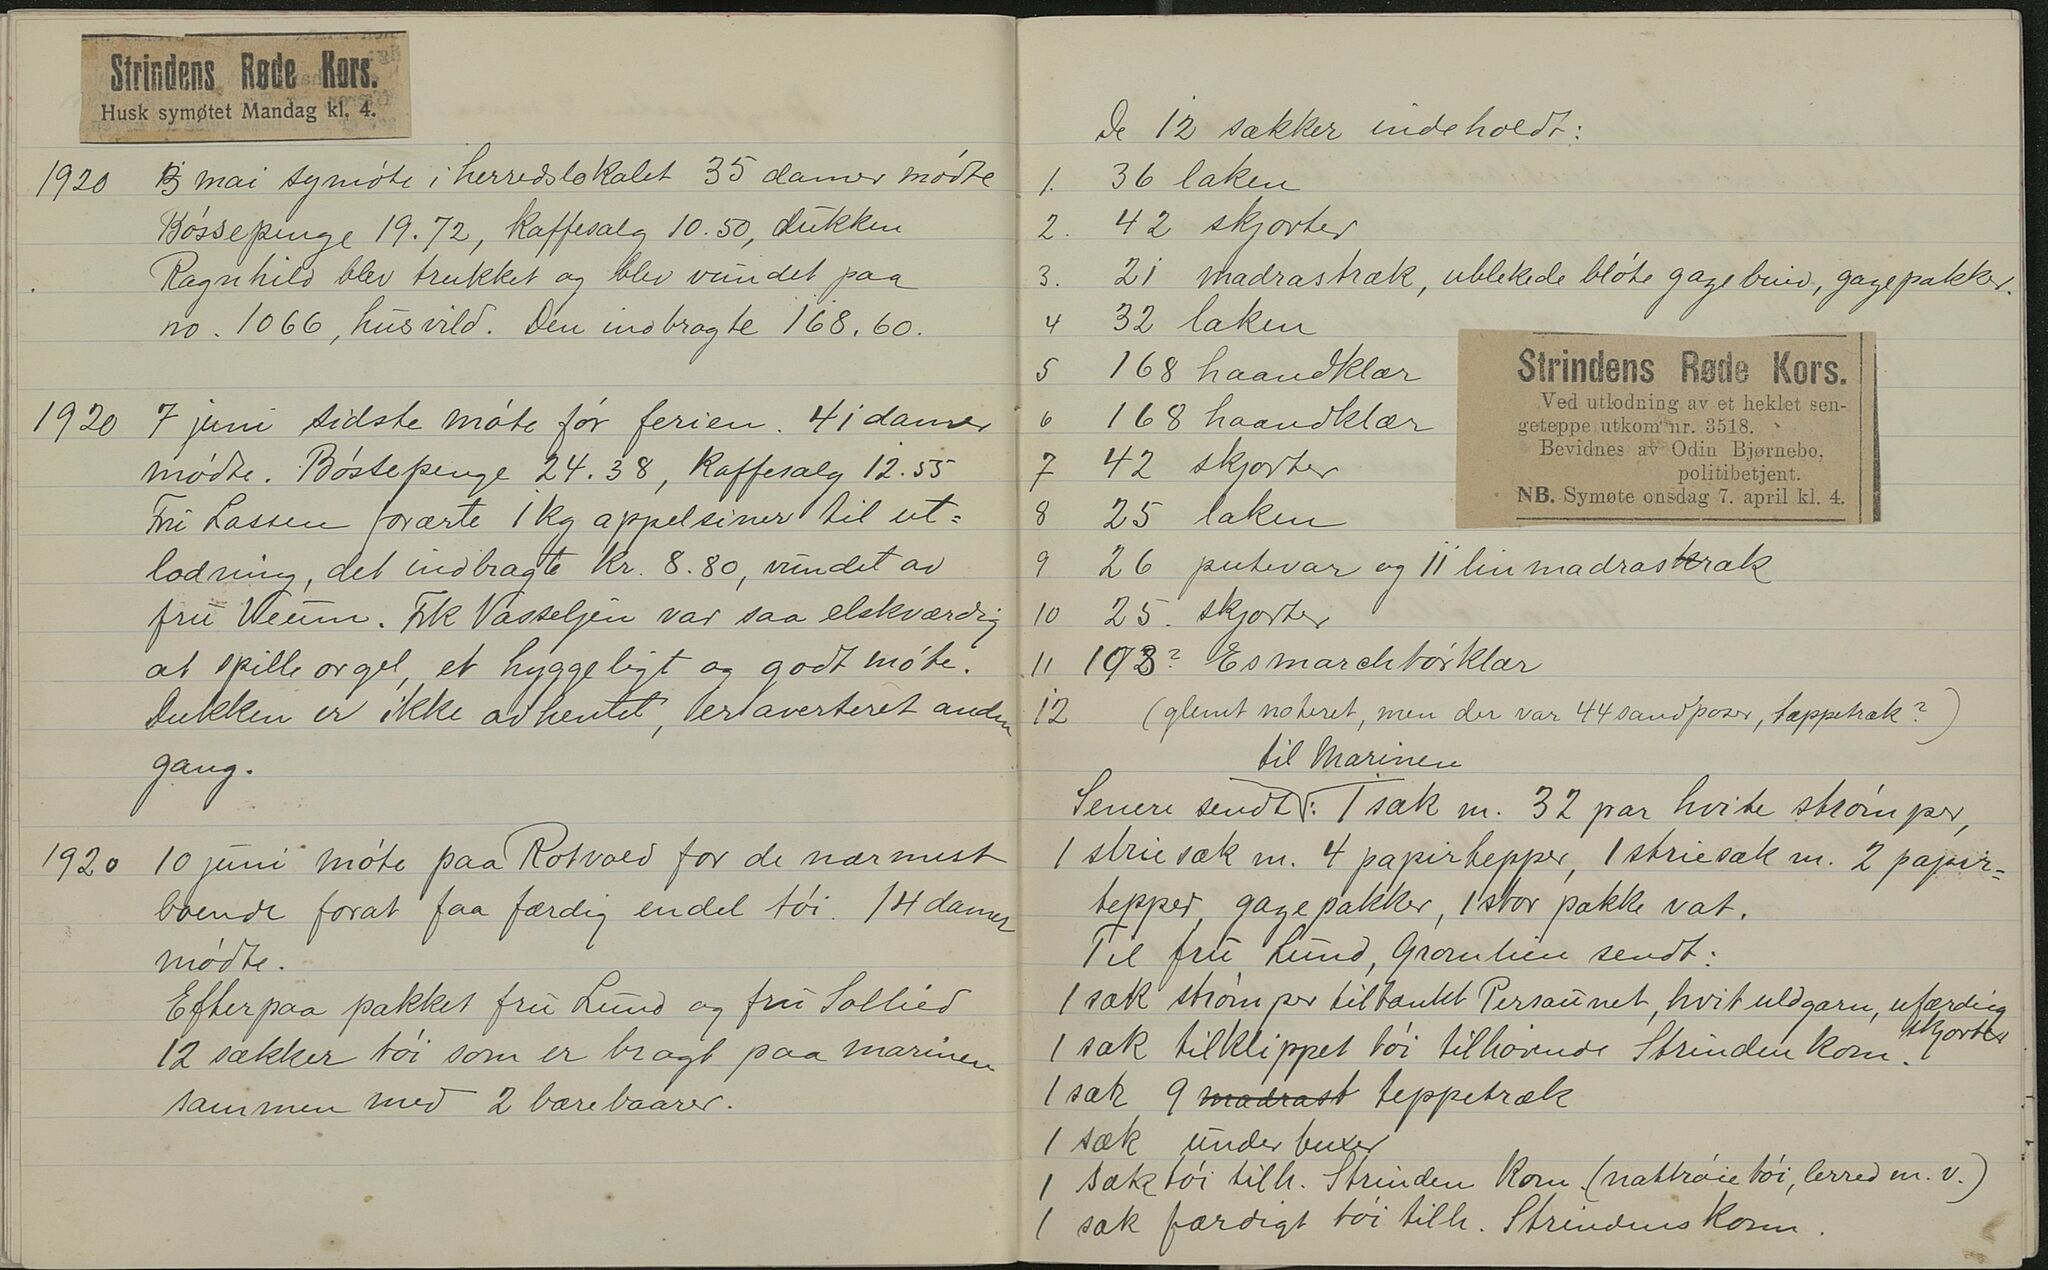 Strindens Røde Kors.
Husk symøtet Mandag kl. 4.
1920 mai symøte i herredslokalet 35 damer mødte
Bøssepenge 19.72, kaffesalg 10.50, dukken
Ragnhild blev trukket og blev vundet paa
no. 1066, husvild. Den indbragte 168.60.
1920 7 juni sidste møte før ferien. 41 damer
mødte. Bøssepenge 24.38, kaffesalg 12.55
Fru Lassen forærte 1 kg appelsiner til ut=
lodning, det indbragte kr. 8.80, vundet av
fru Veum. Frk Vasseljen var saa elskværdig
at spille orgel, et hyggeligt og godt møte.
Dukken er ikke avhentet, er averteret anden
gang.
1920 10 juni møte paa Rotvold for de nærmest
boende forat faa færdig endel tøi. 14 damer
mødte.
Efterpaa pakket fru Lund og fru Sollied
12 sækker tøi som er bragt paa marinen
sammen med 2 bærebaarer.
De 12 sækker indeholdt:
1. 36 laken
2. 42 skjorter
3. 21 madrastræk, ublekede bløte gazebind, gazepakker.
4 32 laken
5 168 haandklær
6 168 haandklær
7 42 skjorter
8 25 laken
9 26 putevar og 11 lin madrastræk
10 25. skjorter
11 103? Esmarchtørklær
12 (glemt noteret, men der var 44 sandposer, tæppetræk?)
til Marinen
Senere sendt: 1 sæk m. 32 par hvite strømper,
1 striesæk m. 4 papirtepper, 1 striesæk m. 2 papir=
tepper, gazepakker, 1 stor pakke vat.
Til fru Lund, Gromlien sendt:
1 sæk strømper tiltænkt Persaunet, hvit uldgarn, ufærdig
skjorter
1 sæk tilklippet tøi tilhørende Strinden kom.
1 sæk 9 madrast teppetræk
1 sæk underbuxer
1 sæk tøi tilh. Strinden Kom. (nattrøie tøi, lerred m.v.)
1 sæk færdigt tøi tilh. Strindens Kom.
Strindens Røde Kors.
Ved utlodning av et heklet sen-
geteppe utkom nr. 3518.
Bevidnes av Odin Bjørnebo,
politibetjent.
NB. Symøte onsdag 7. april kl. 4.